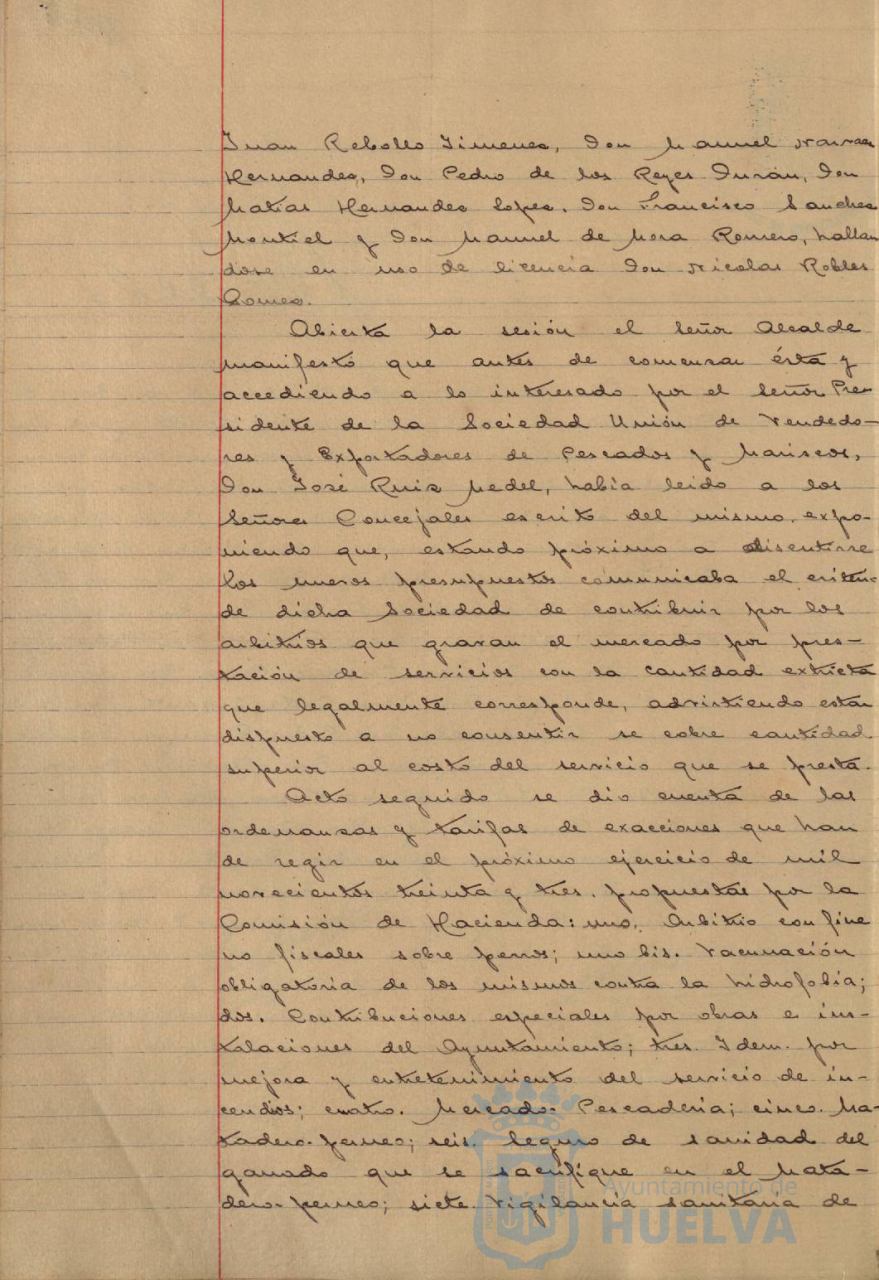 Juan Rebollo Jimenez, Don Manuel Narvaez
Hernandez, Don Pedro de los Reyes Durán, Don
Matias Hernandez Lopez, Don Francisco Sanchez
Montiel y Don Manuel de Mora Romero, hallan
dose en uso de licencia Don Nicolas Robles
Gomez.
Abierta la sesión el Señor Alcalde
manifestó que antes de comenzar ésta y
accediendo a lo interesado por el Señor Pre-
sidente de la Sociedad Unión de Vendedo-
res y Exportadores de Pescados y Mariscos,
Don José Ruiz Medel, había leido a los
Señores Concejales escrito del mismo, expo-
niendo que, estando próximo a discutirse
los nuevos presupuestos comunicaba el criterio
de dicha Sociedad de contribuir por los
arbitrios que gravan el mercado por pres-
tación de servicios con la cantidad extricta
que legalmente corresponde, advirtiendo estar
dispuesto a no consentir se cobre cantidad
superior al costo del servicio que se presta.
Acto seguido se dio cuenta de las
ordenanzas y tarifas de exacciones que han
de regir en el próximo ejercicio de mil
novecientos treinta y tres, propuestas por la
Comisión de Hacienda: uno. Arbitrio con fine
no fiscales sobre perros; uno bis. Vacunación
obligatoria de los mismos contra la hidrofobia;
dos. Contribuciones especiales por obras e ins-
talaciones del Ayuntamiento; tres. Idem. por
mejora y entretenimiento del servicio de in-
cendios; cuatro. Mercado-Pescaderia; cinco. Ma-
tadero-perneo; seis. Seguro de sanidad del
ganado que se sacrifique en el Mata-
dero-perneo; siete. Vigilancia sanitaria de
Ayuntamiento de
HUELVA